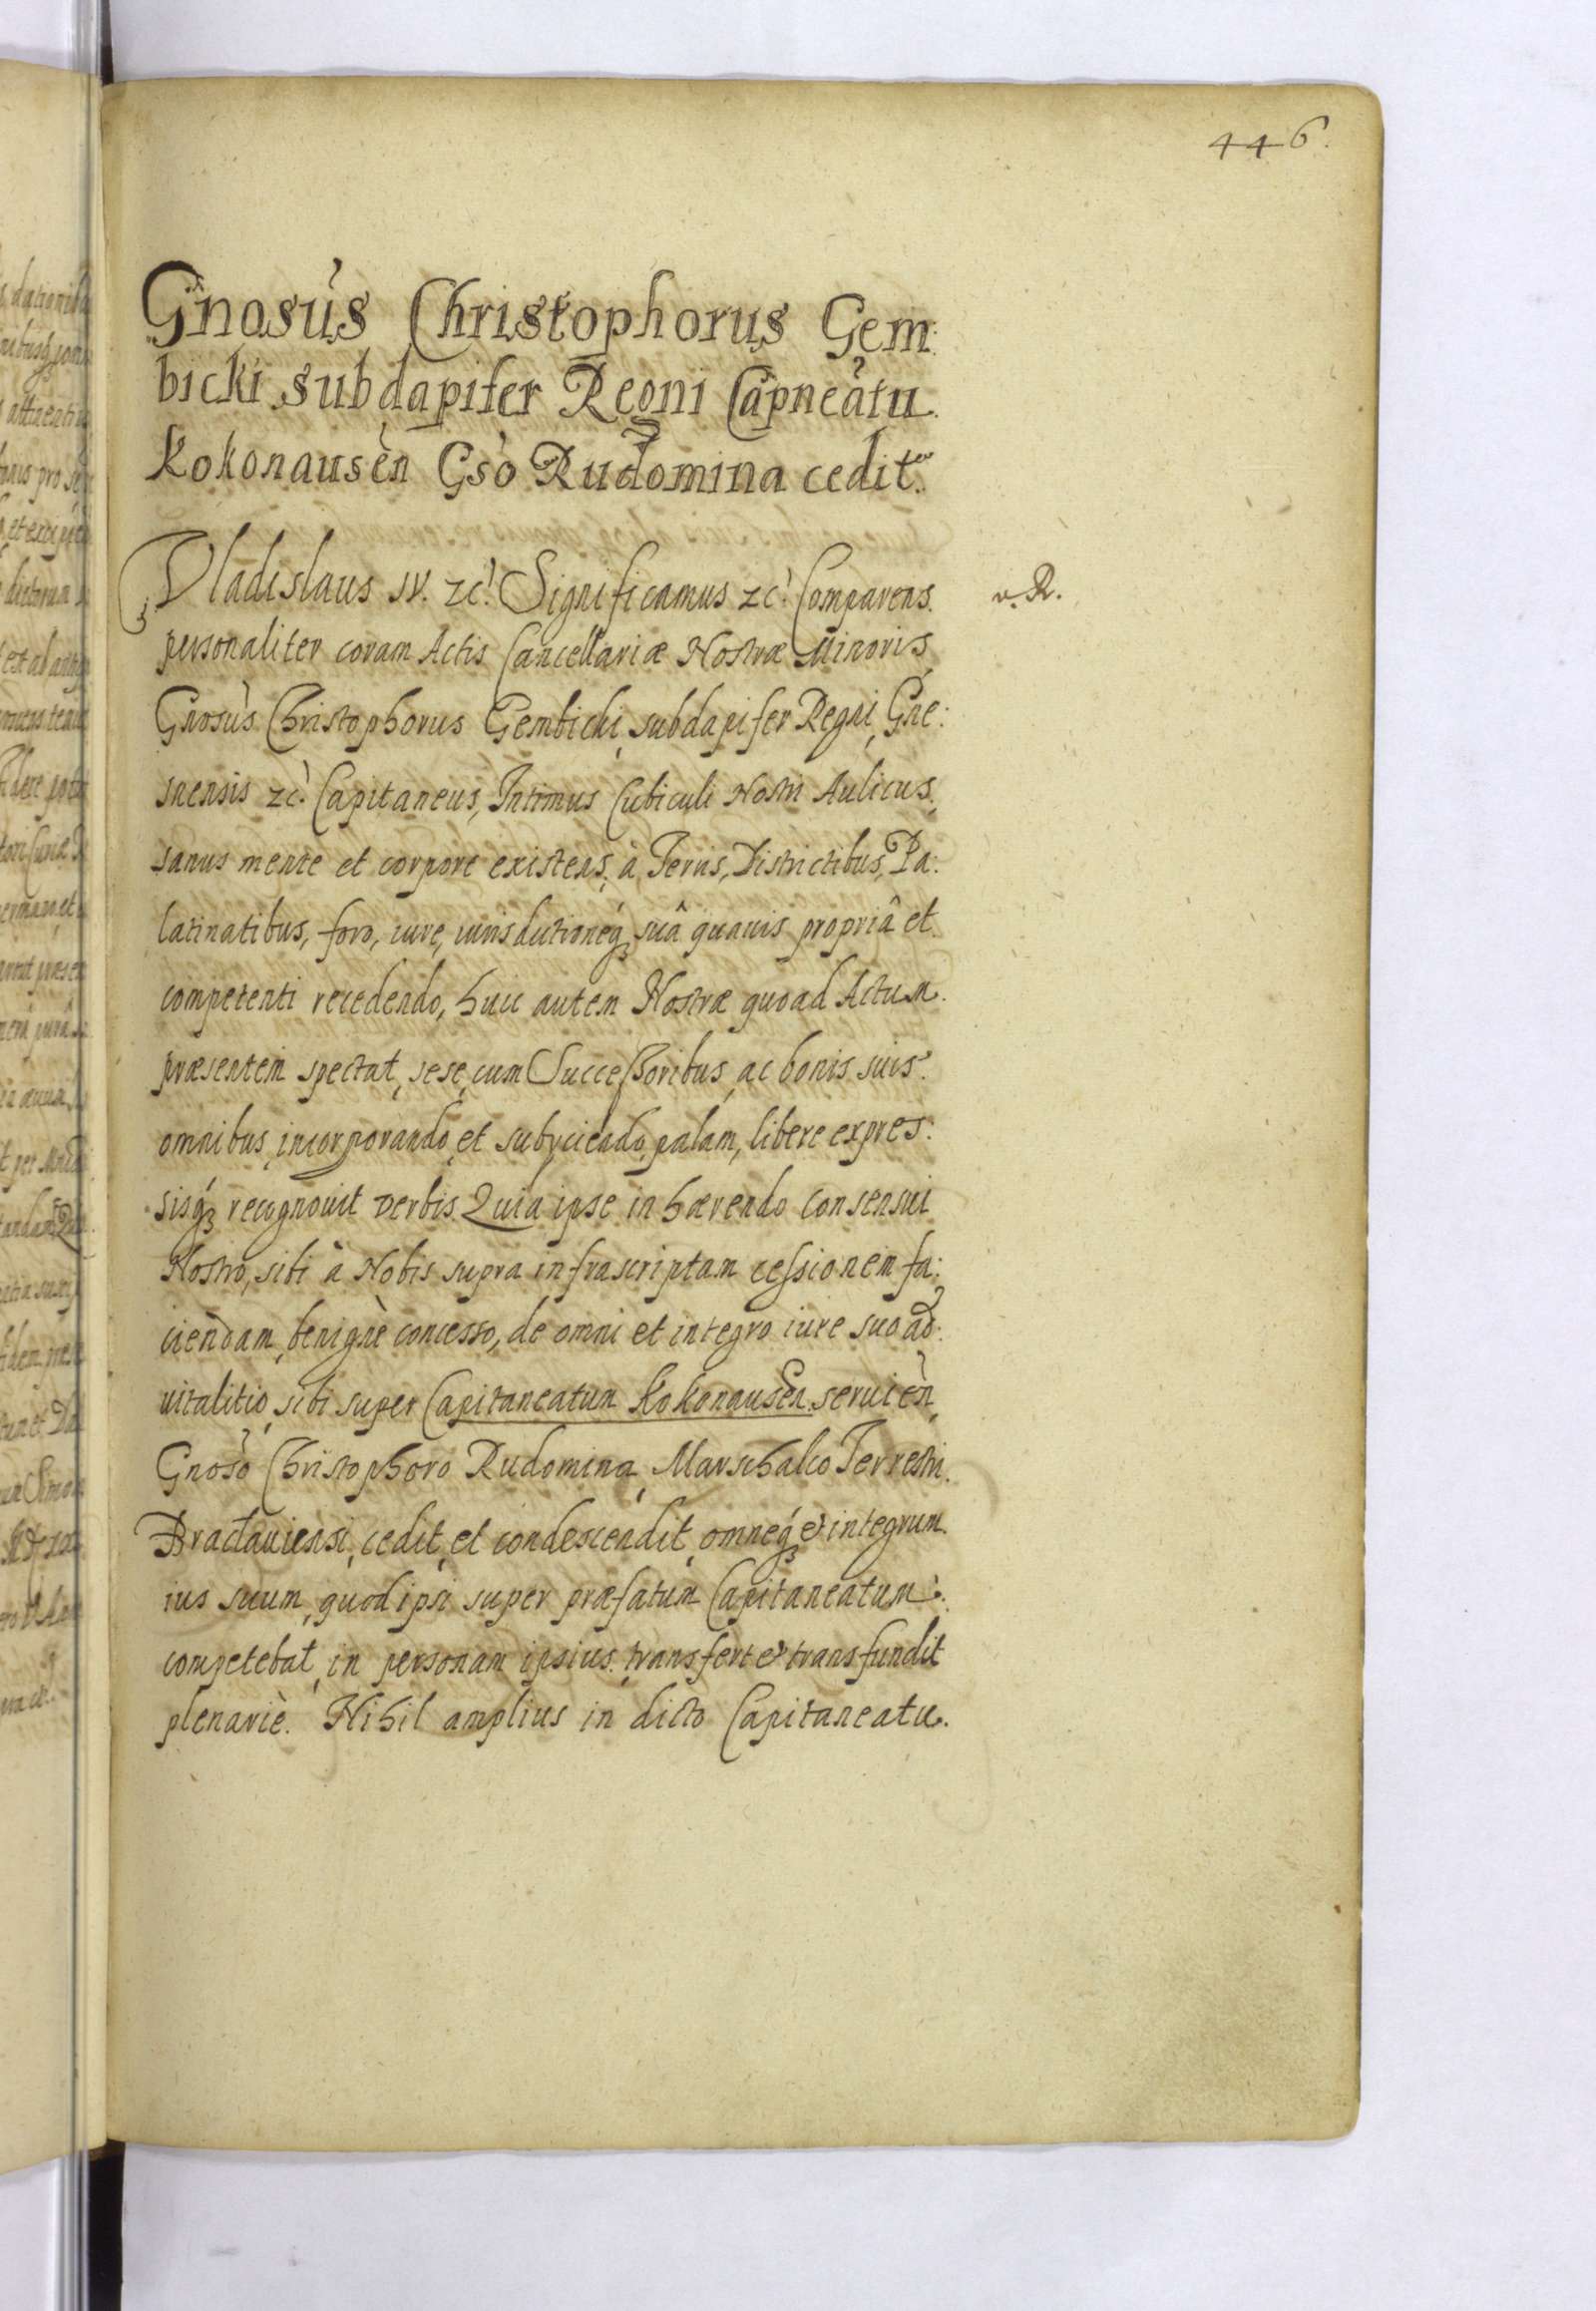 446.
Gnosùs Christophorus Gem:
bicki subdapifer Regni Capneàtu
Kokonausèn Gsò Rudomina cedit.
Vladislaus IV. zc. Significamus zc. Comparens
v. R.
personaliter coram Actis Cancellariæ Nostræ Minoris
Gnosùs Christophorus Gembicki, subdapifer Regni, Gne:
snensis zc. Capitaneus, Intimus Cubiculi Nostri Aulicus,
sanus mente et corpore existens, à Terris, Districtibus, Pa:
latinatibus, foro, iure, iurisdictioneq, suâ quauis propriâ et
competenti recedendo, huic autem Nostræ quoad Actum
præsentem spectat, sese, cum Successoribus, ac bonis suis
omnibus, incorporando, et subyciendo, palam, libere expres:
sisq, recognouit verbis. Quia ipse inhærendo consensui
Nostro, sibi à Nobis supra infrascriptam cessionem fa:
ciendam, benignè concesso, de omni et integro iure suo ad:
uitalitio, sibi super Capitaneatum Kokonausèn. seruièn,
Gnosò Christophoro Rudomina, Marschalco Terrestri
Braclauiensi, cedit, et condescendit, omneq, & integrum
ius suum, quod ipsi super præfatum Capitaneatum
competebat, in personam ipsius transfert & transfundit
plenariè. Nihil amplius in dicto Capitaneatu